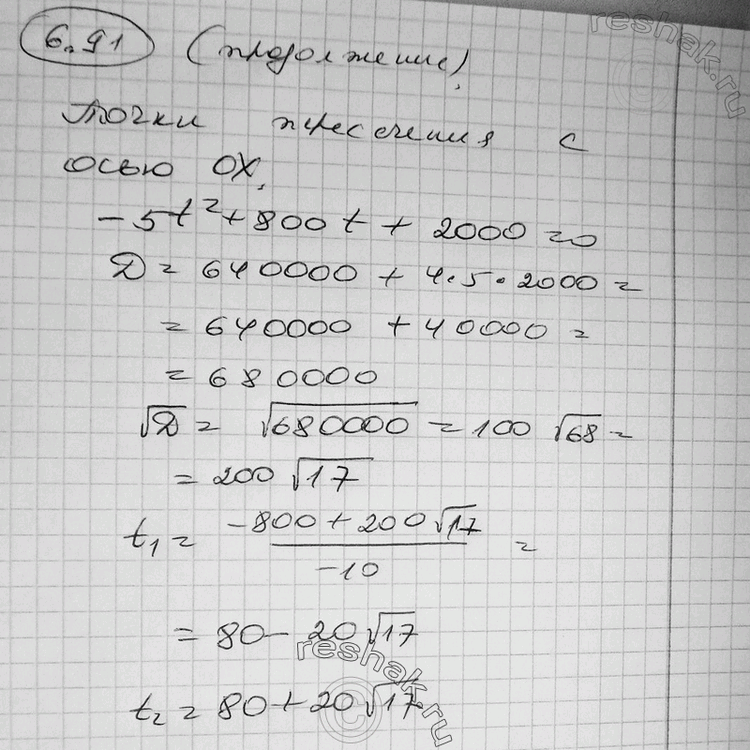 6.91 (продолжение).
Точки пересечения с
осью OX.
-5t² + 800t + 2000 = 0
D = 640000 + 4·5·2000 =
= 640000 + 40000 =
= 680000
√D = √680000 = 100 √68 =
= 200 √17
t₁ = (-800 + 200√17)/(-10) =
= 80 - 20√17
t₂ = 80 + 20√17
reshak.ru
reshak.ru